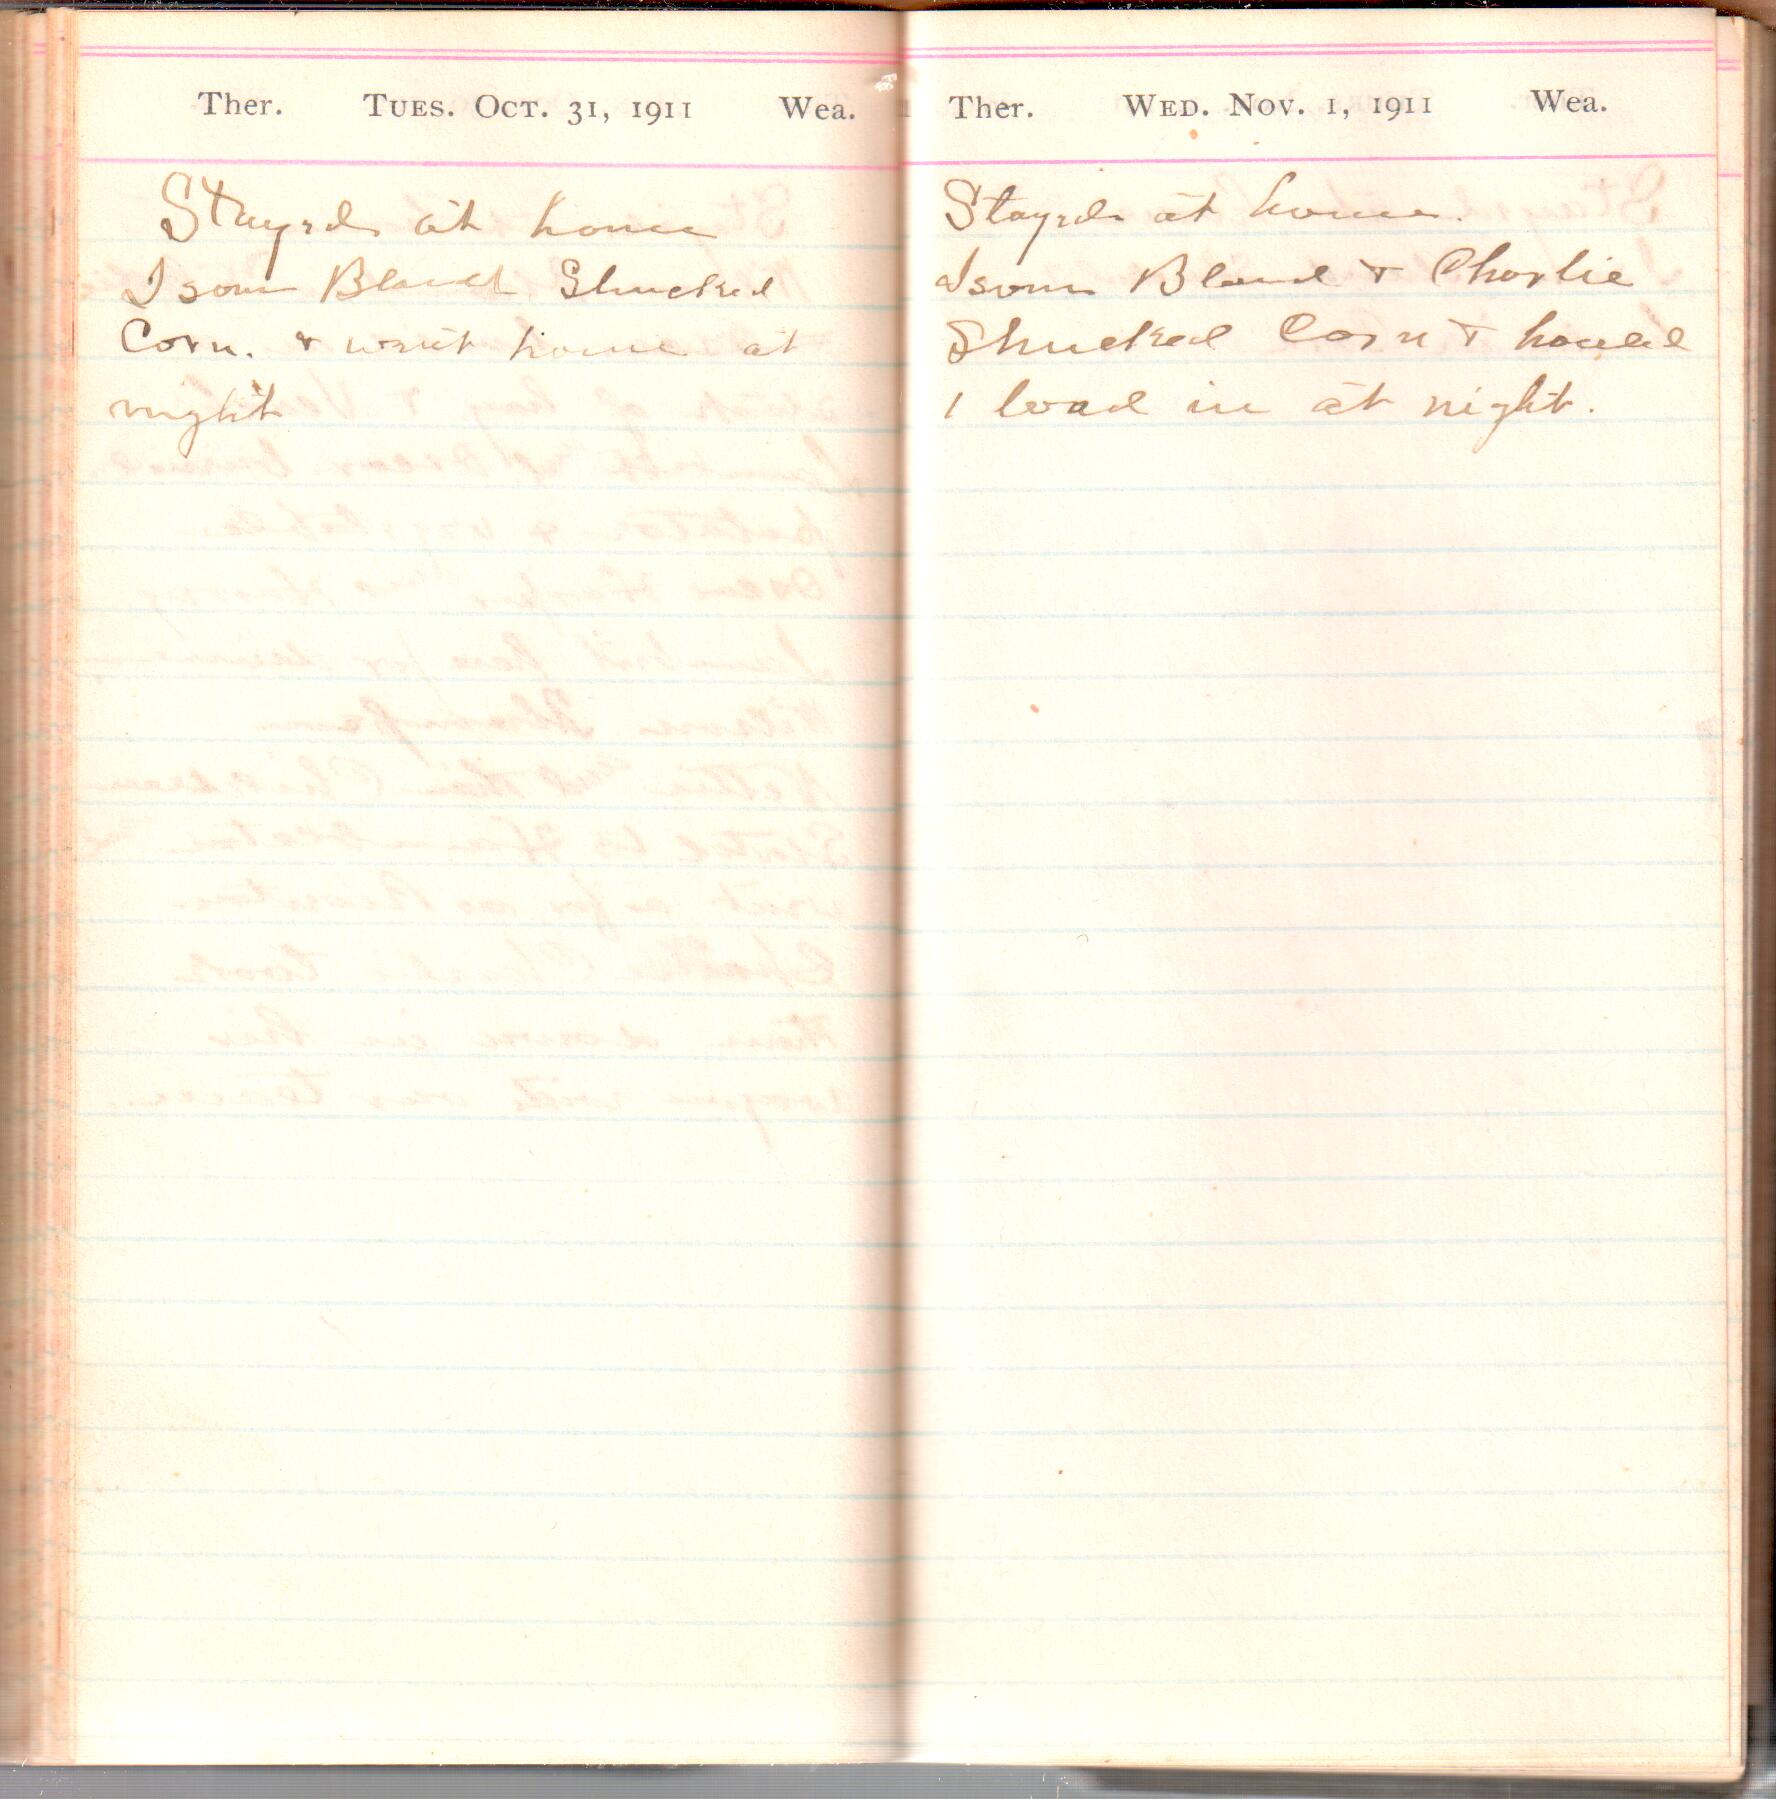 Ther. Tues. Oct. 31, 1911 Wea.
Stayed at home
Isom Bland Shucked
Corn. & went home at
night
Ther. Wed. Nov. 1, 1911 Wea.
Stayed at home.
Isom Bland & Charlie
Shucked Corn & hauled
1 load in at night.